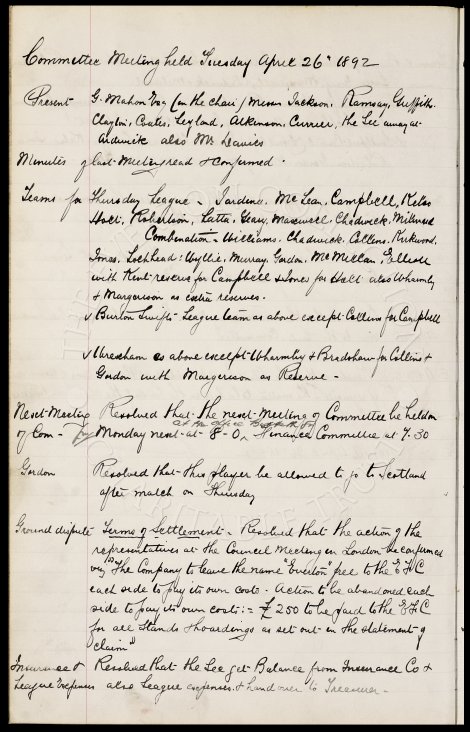 Committee Meeting held Tuesday April 26th 1892
Present G. Mahon Esq (in the chair) Messrs Jackson, Ramsay, Griffiths.
Clayton, Coates, Leyland, Atkinson, Currier, the Sec away at
Ardwick also Mr Davies
Minutes of last Meeting read & confirmed.
Teams for Thursday League - Jardine, McLean, Campbell, Kelso
Holt, Robertson, Latta, Geary, Maxwell, Chadwick, Milward
Combination - Williams, Chadwick, Collins, Kirkwood,
Jones, Lochhead: Wyllie, Murray, Gordon, McMillan, Elliott
with Kent reserve for Campbell & Jones for Holt also Wharmby
& Margerison as extra reserves.
✓ Burton Swifts - League team as above except Collins for Campbell
✓ Wrexham as above except Wharmby & Bradshaw for Collins &
Gordon with Margerison as Reserve -
Next Meeting Resolved that the next Meeting of Committee be held on
at the office
of Com - Monday next at 8-0, Finance Committee at 7.30
Gordon Resolved that this player be allowed to go to Scotland
after match on Thursday
Ground dispute Terms of Settlement - Resolved that the action of the
representatives at the Council Meeting in London be confirmed
viz "The Company to leave the name "Everton" free to the E.F.C
each side to pay its own costs. Action to be abandoned each
side to pay its own costs: - £250 to be paid to the E.F.C
for all Stands & hoardings as set out in the statement of
claim"
Insurance & Resolved that the Sec get Balance from Insurance Co &
League Expenses also League expenses & hand over to Treasurer -